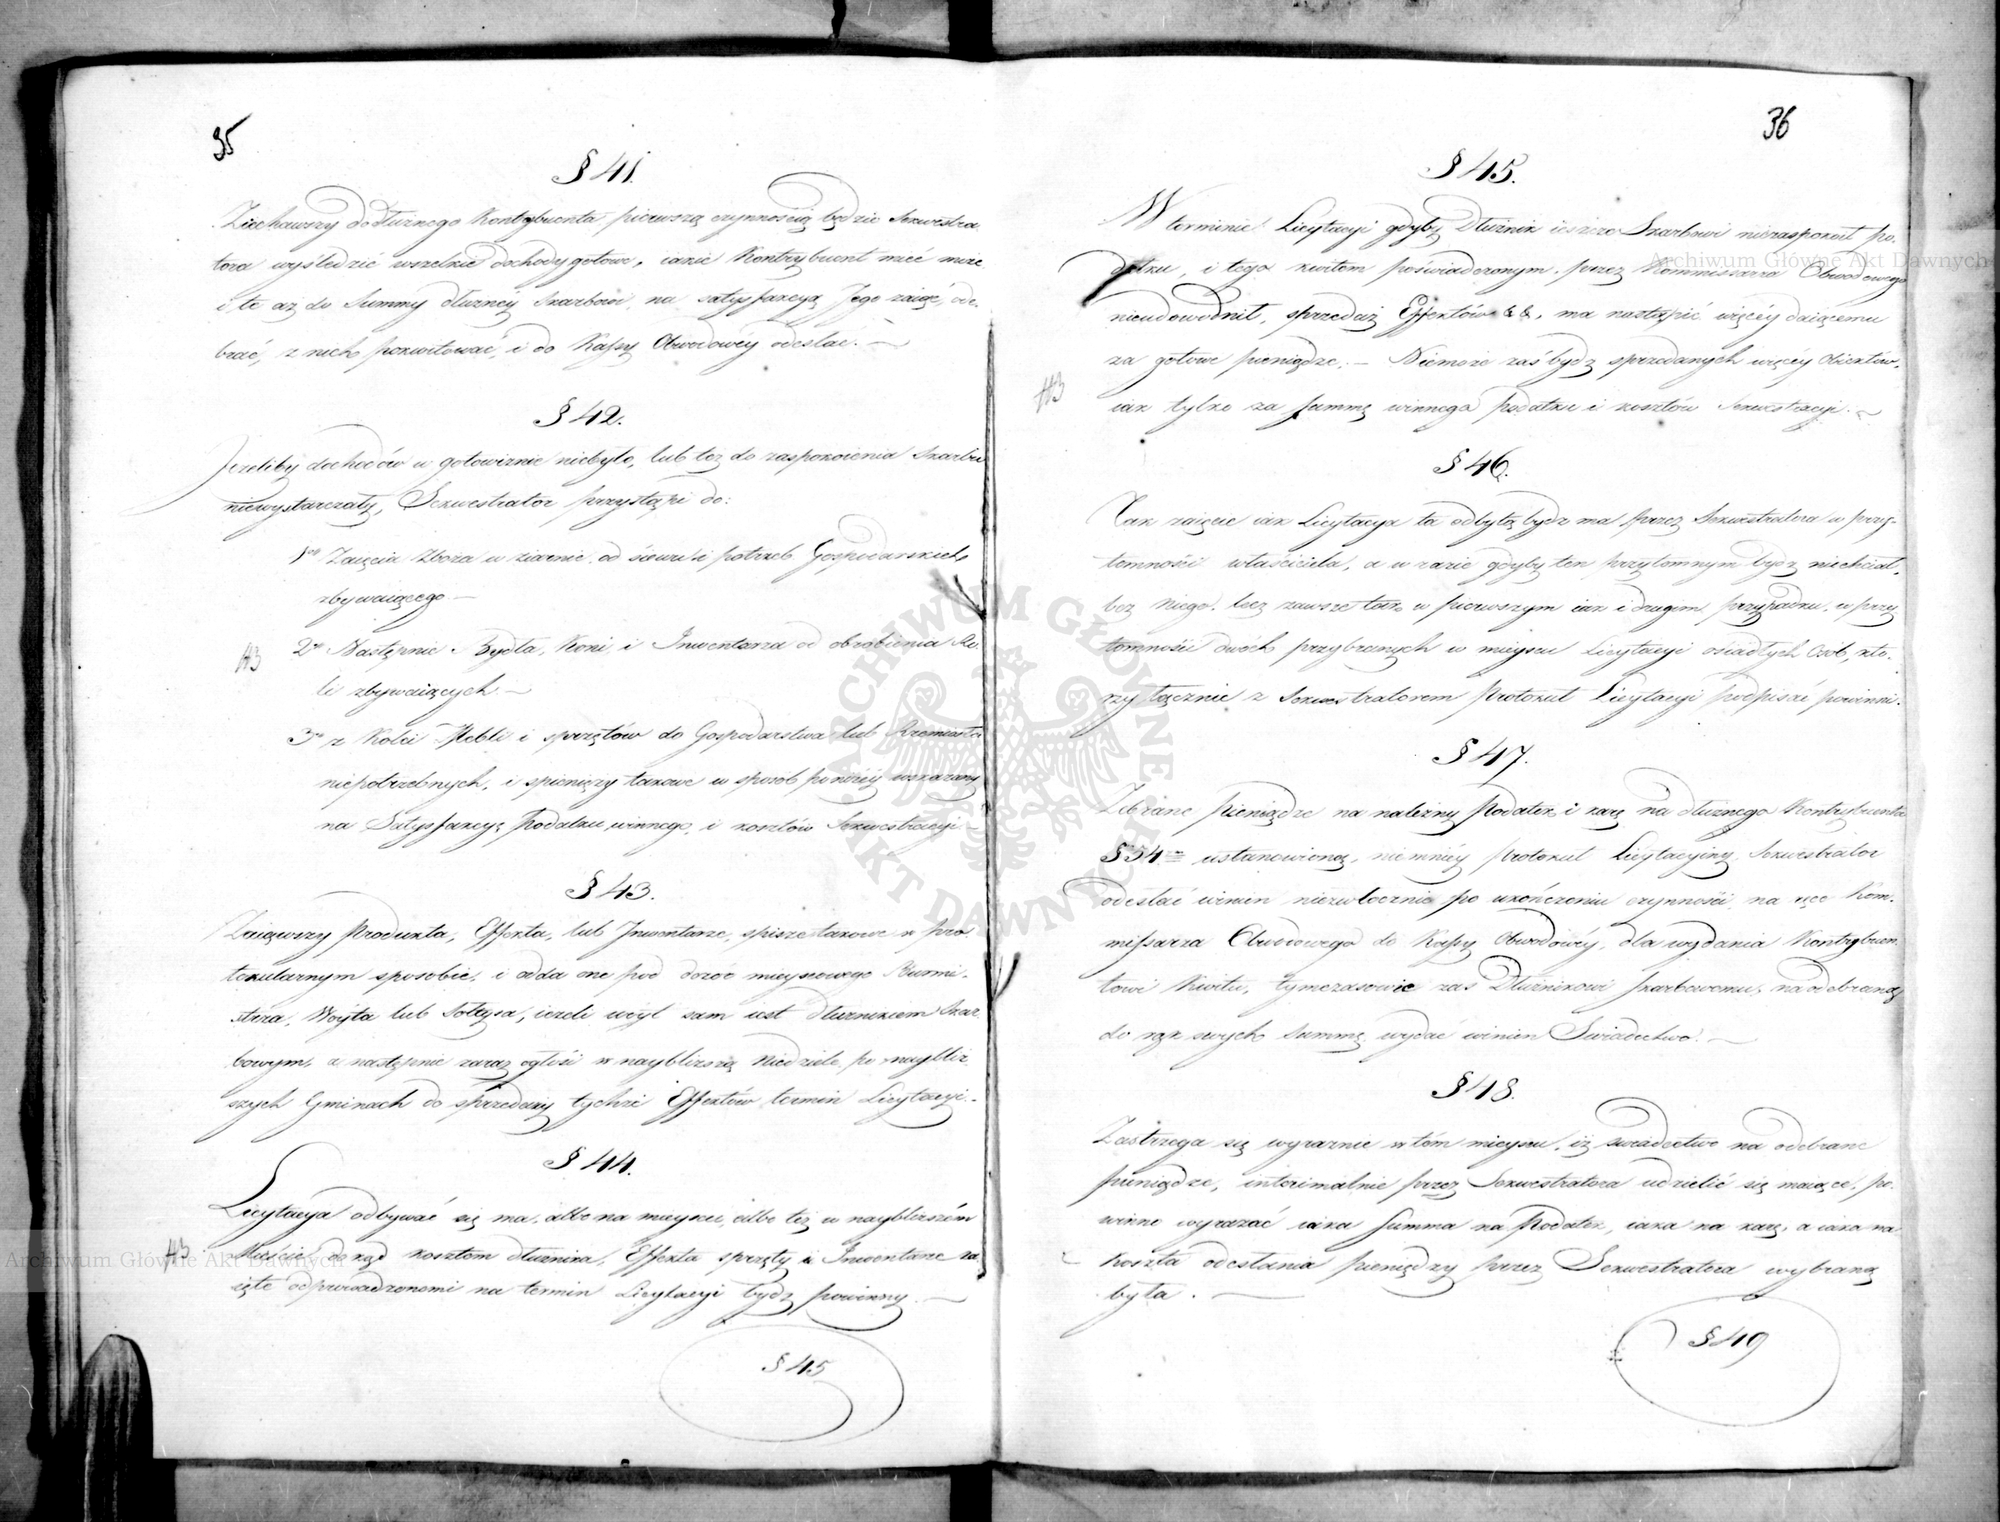 35
§ 41.
Ziechawszy do dłużnego Kontrybuenta pierwszą czynnością będzie Sekwestra
tora wyśledzić wszelkie dochody gotowe, iakie Kontrybuent mieć może
i te aż do Summy dłużney Skarbowi, na satysfakcyą Jego zaiąć, ode-
brać, z nich pokwitować, i do Kassy Obwodowéy odesłać. —
§ 42.
Jeżeliby dochodów w gotowiznie niebyło, lub też do zaspokoienia Skarbu
niewystarczały, Sekwestrator przystąpi do:
1mo Zaięcia Zboża w ziarnie, od siewu i potrzeb Gospodarskich
zbywaiącego. —
2do Następnie Bydła, Koni i Inwentarza od obrobienia Ro-
li zbywaiących. —
3io z Kolei Mebli i sprzętów do Gospodarstwa lub Rzemiosła
niepotrzebnych, i spienięży takowe w sposób poniżéy wskazany
na Satysfakcyą Podatku winnego i kosztów Sekwestracyi —
§ 43.
Zaiąwszy Produkta, Effekta, lub Inwentarze, spisze takowe w pro-
tokularnym sposobie, i odda one pod dozór mieyscowego Burmi-
strza, Wóyta lub Sołtysa, ieżeli wóyt sam iest dłużnikiem Skar-
bowym, a następnie zaraz ogłosi w naybliższą Niedzielę, po naybliż-
szych Gminach do sprzedaży tychże Effektów termin Licytacyi. -
§ 44.
Licytacya odbywać się ma, albo na mieyscu, albo też w naybliższém
Mieście, dokąd kosztem dłużnika, Effekta sprzęty i Inwentarze za-
ięte odprowadzonemi na termin Licytacyi bydź powinny. —
§ 45
36
§ 45.
W terminie Licytacyi gdyby Dłużnik ieszcze Skarbowi niezaspokoił po-
datku, i tego kwitem poświadczonym, przez Kommissarza Obwodowego
nieudowodnił, sprzedaż Effektów &&, ma nastąpić więcéy daiącemu
za gotowe pieniądze. — Niemoże zaś bydź sprzedanych więcéy Obiektów,
iak tylko za Summę winnego podatku i kosztów Sekwestracyi. —
§ 46.
Tak zaięcie iak Licytacya ta odbytą bydź ma przez Sekwestratora w przy-
tomności właściciela, a w razie gdyby ten przytomnym bydź niechciał,
bez Niego, lecz zawsze tak w pierwszym iak i drugim przypadku, w przy
tomności dwóch przybranych w mieyscu Licytacyi osiadłych Osób, któ-
rzy łącznie z Sekwestratorem Protokuł Licytacyi podpisać powinni.
§ 47.
Zebrane Pieniądze na należny Podatek i karę na dłużnego Kontrybuenta
§ 34 ustanowioną, niemniéy protokuł Licytacyiny, Sekwestrator
odesłać winien niezwłocznie po ukończeniu czynności na ręce Kom-
missarza Obwodowego do Kassy Obwodowéy, dla wydania Kontrybuen-
towi Kwitu, tymczasowie zaś Dłużnikowi Skarbowemu, na odebraną
do rąk swych Summę, wydać winien Swiadectwo. —
§ 48.
Zastrzega się wyraznie w tém mieyscu, iż swiadectwo na odebrane
pieniądze, interimalnie przez Sekwestratora udzielić się maiące, po-
winno wyrażać iaka Summa na Podatek, iaka na karę, a iaka na
koszta odesłania pieniędzy przez Sekwestratora wybraną
była. —
§ 49